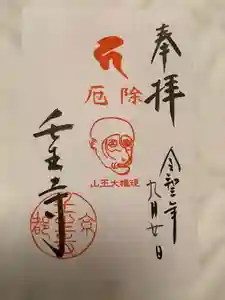 奉拝
令和二年
九月廿日
厄除
山王大権現
壬生寺
京都